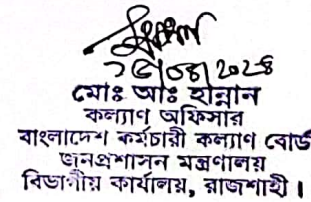 মোঃ আঃ হান্নান
কল্যাণ অফিসার
বাংলাদেশ কর্মচারী কল্যাণ বোর্ড
জনপ্রশাসন মন্ত্রণালয়
বিভাগীয় কার্যালয়, রাজশাহী।